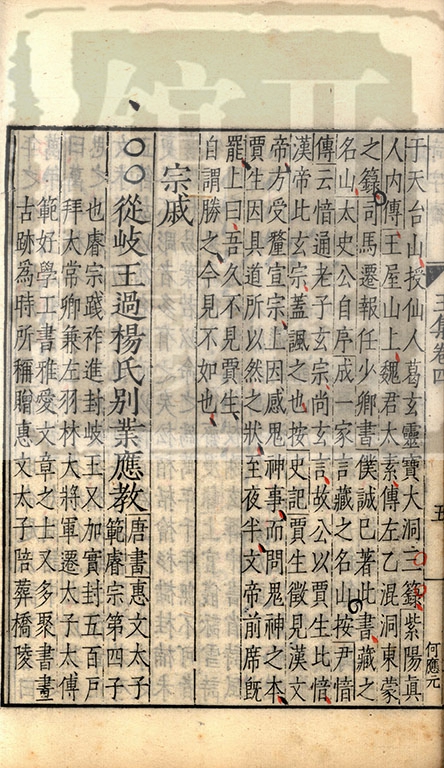 于天台山授仙人葛玄靈寶大洞三籙紫陽眞
人內傳王屋山上魏君太素傳左乙混洞東蒙
之籙司馬遷報任少卿書僕誠已著此書藏之
名山太史公自序成一家言藏之名山按尹愔
傳云愔通老子玄宗尚玄言故公以賈生比愔
漢帝比玄宗蓋諷之也按史記賈生徵見漢文
帝方受釐宣宗上因感鬼神事而問鬼神之本
賈生因具道所以然之狀至夜半文帝前席既
罷上曰吾久不見賈生
自謂勝之今見不如也
宗戚
○○從岐王過楊氏別業應教
唐書惠文太子
範睿宗第四子
也睿宗踐祚進封岐王又加實封五百戶
拜太常卿兼左羽林大將軍遷太子太傅
範好學工書雅愛文章之士又多聚書畫
古跡為時所稱贈惠文太子陪葬橋陵
卷四
五
何應元